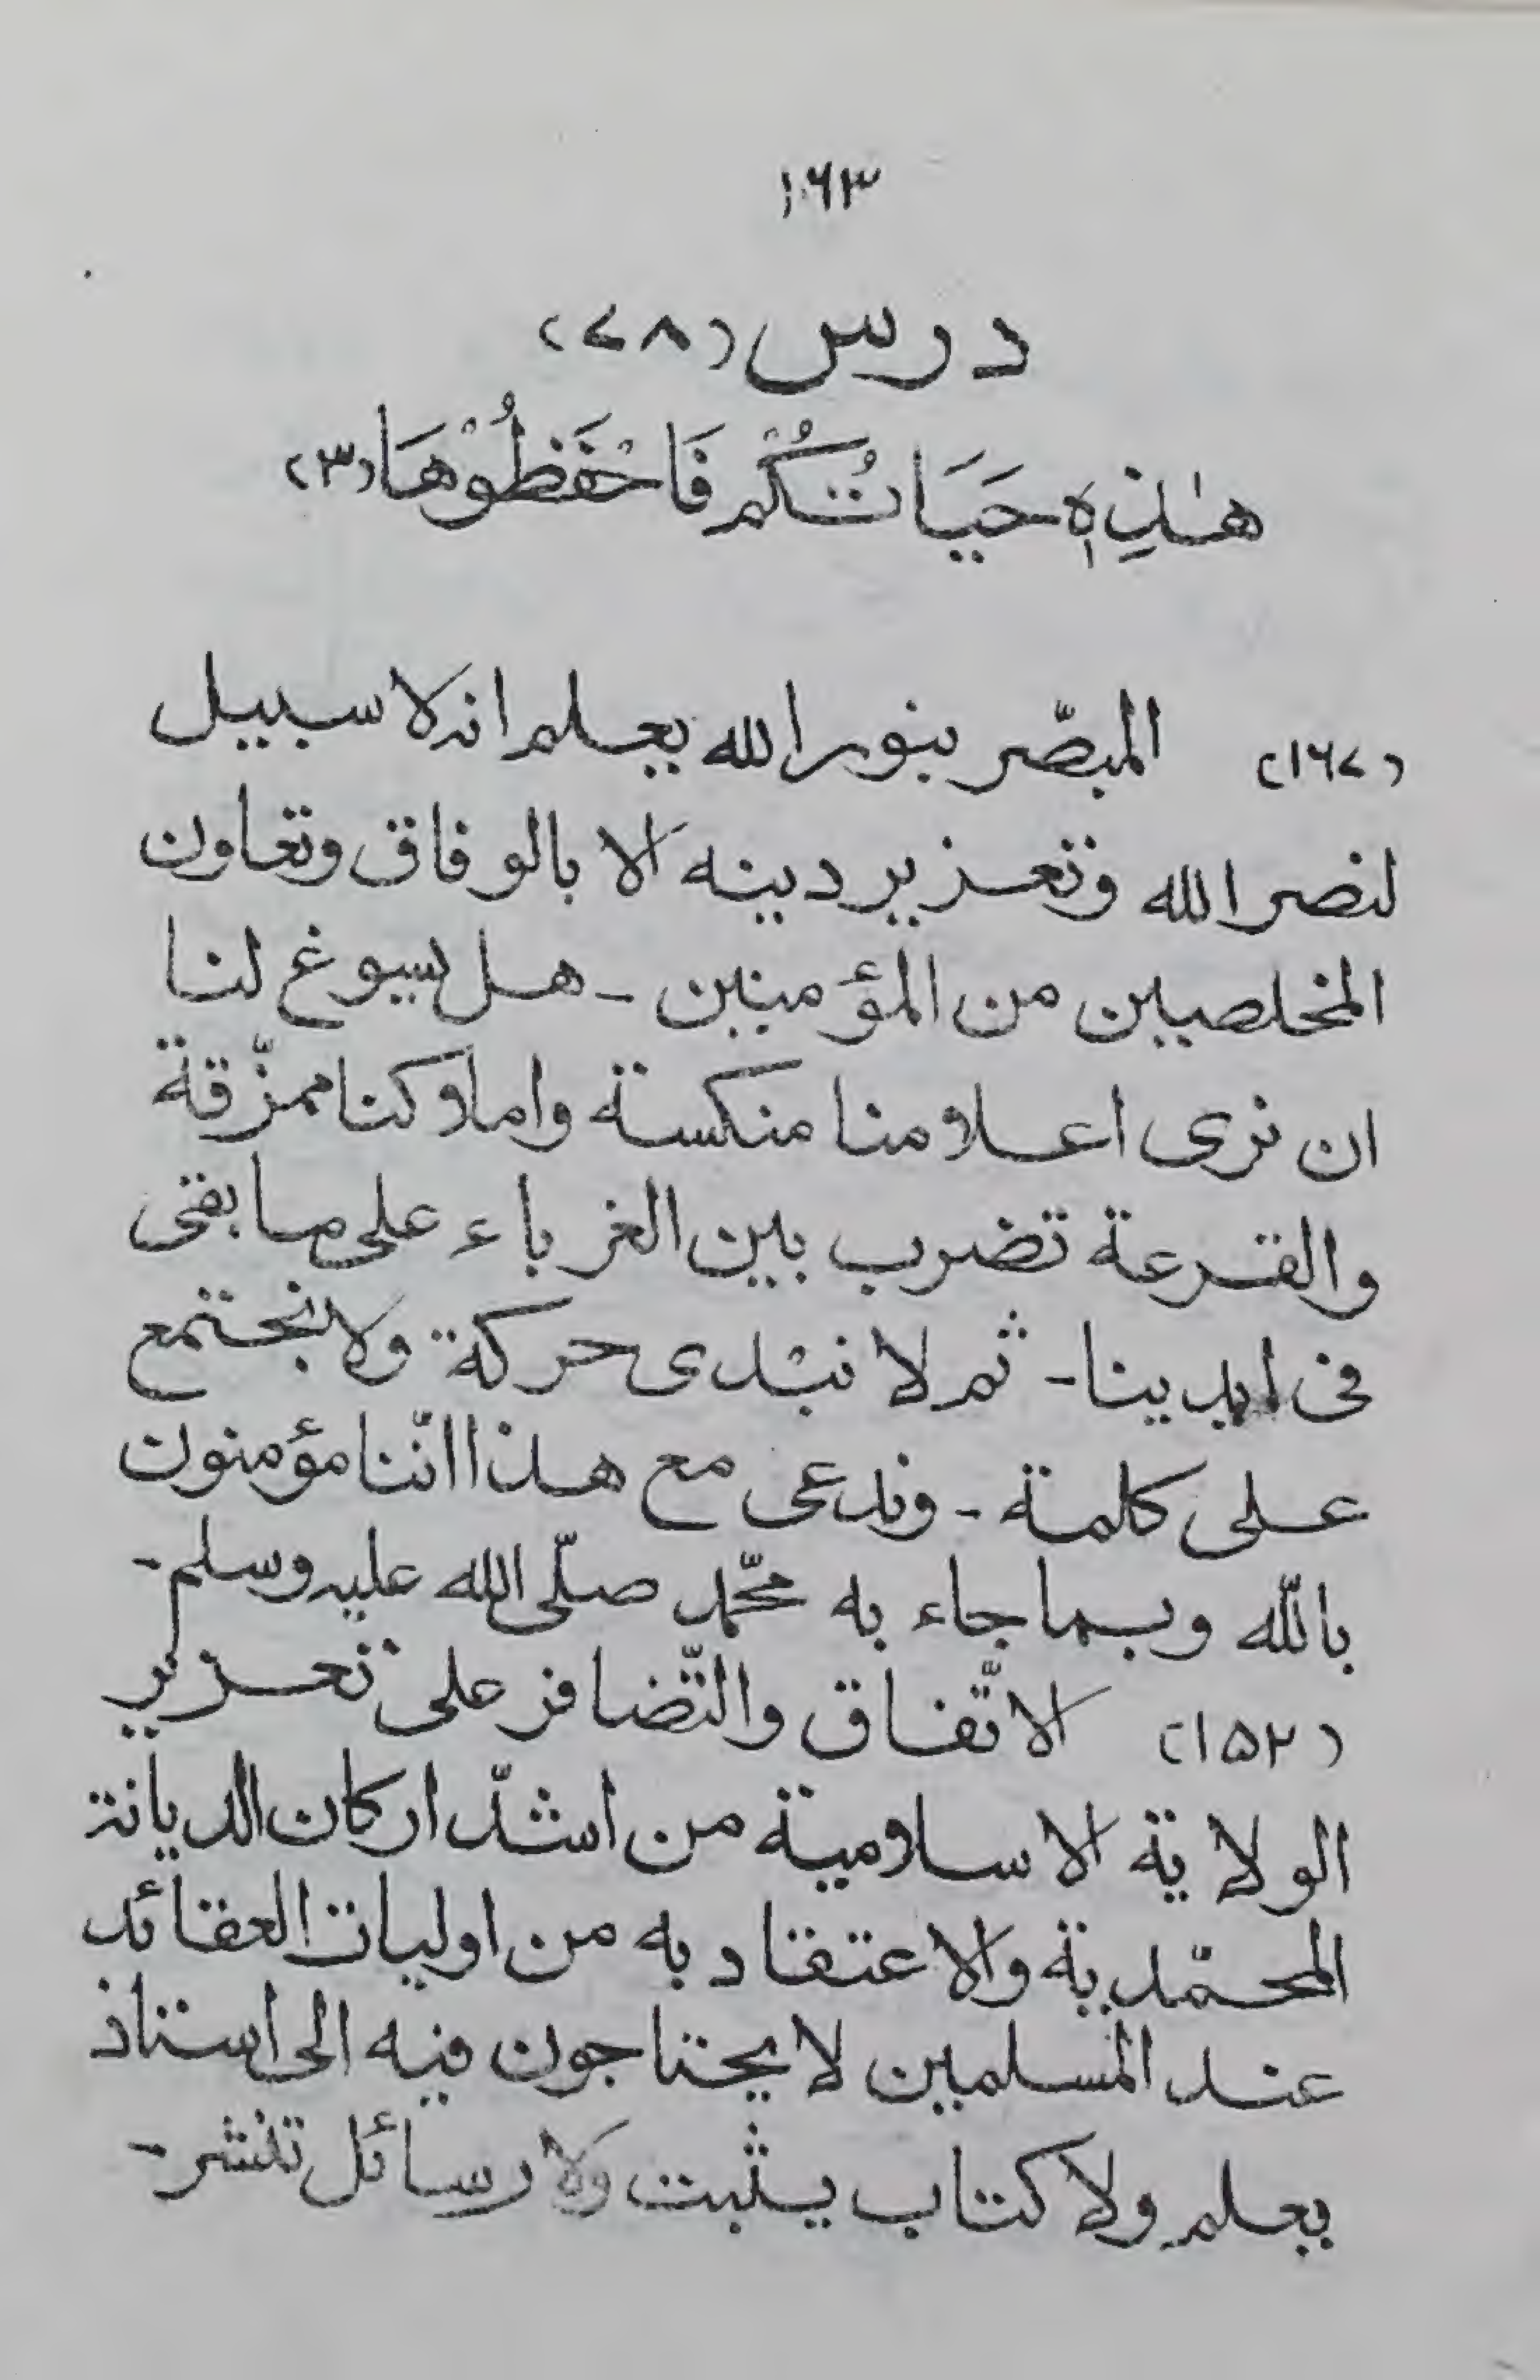 ۱۶۳
درس (۴۸)
هٰذِهٖ حَيَاتُكُمْ فَاحْفَظُوْهَا (۳)
(۱۶۷) المبصّر بنور الله يعلم انه لا سبيل
لنصر الله وتعزير دينه الا بالوفاق وتعاون
المخلصين من المؤمنين - هل يسوغ لنا
ان نرى اعلامنا منكسة واملاكنا ممزّقة
والقرعة تضرب بين الغرباء على ما بقى
فى ايدينا - ثم لا نبْدى حركة ولا نجتمع
على كلمة - وندعى مع هذا انّنا مؤمنون
بالله وبما جاء به محمّد صلّى الله عليه وسلم -
(۱۵۲) الاتّفاق والتّضافر على تعزير
الولاية الاسلامية من اشدّ اركان الديانة
المحمّدية والاعتقاد به من اوليات العقائد
عند المسلمين لا يحتاجون فيه الى استاذ
يعلم ولا كتاب يثبت ولا رسائل تنشر -